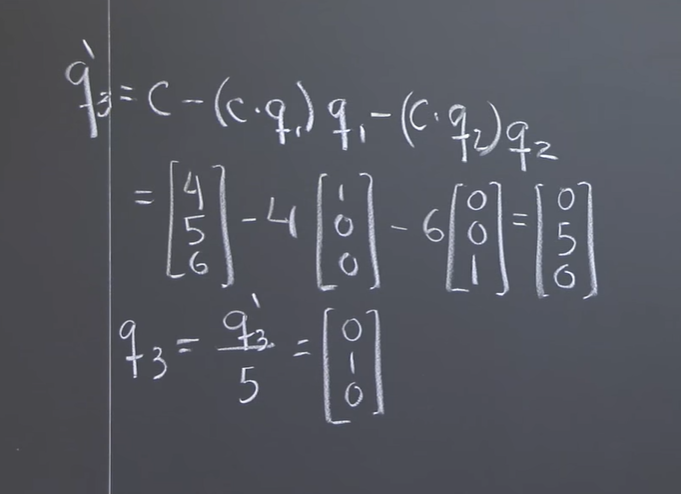 q₃' = C - (C·q₁) q₁ - (C·q₂) q₂
= [4 5 6] - 4 [1 0 0] - 6 [0 0 1] = [0 5 0]
q₃ = q₃' / 5 = [0 1 0]